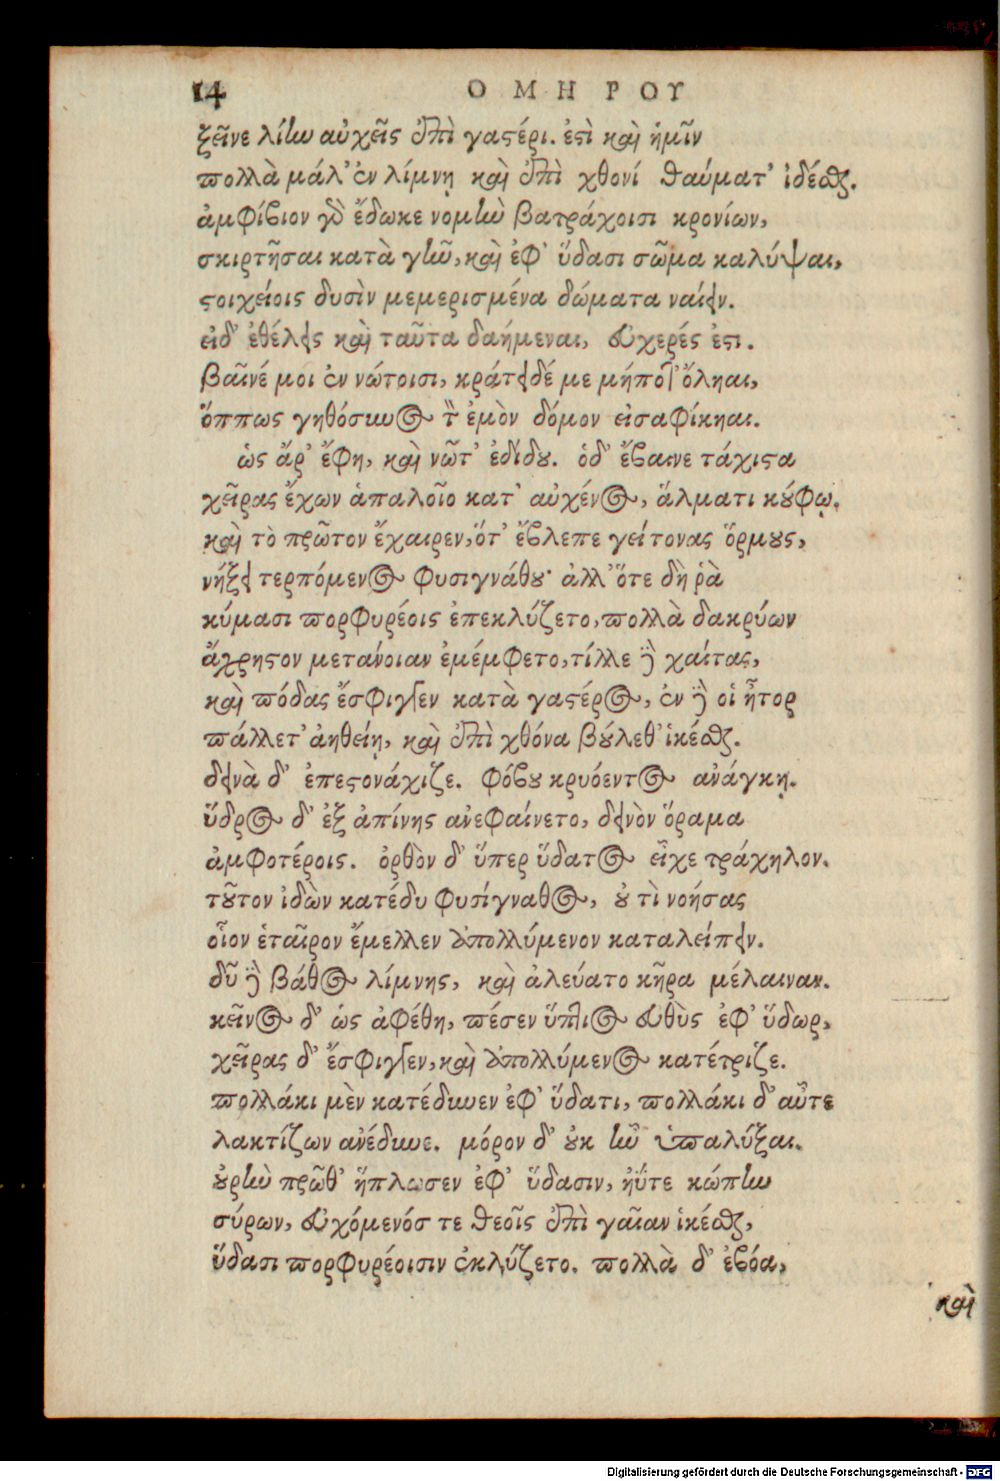 14 ΟΜΗΡΟΥ
ξεῖνε λίην αὐχεῖς ἐπὶ γαστέρι. ἐστὶ καὶ ἡμῖν
πολλὰ μάλ' ἐν λίμνῃ καὶ ἐπὶ χθονί θαύματ' ἰδέσθαι.
ἀμφίβιον γὰρ ἔδωκε νομὴν βατράχοισι κρονίων,
σκιρτῆσαι κατὰ γῆν, καὶ ἐφ' ὕδασι σῶμα καλύψαι,
στοιχείοις δυσὶν μεμερισμένα δώματα ναίειν.
εἰδ' ἐθέλεις καὶ ταῦτα δαήμεναι, εὐχερές ἐστι.
βαῖνέ μοι ἐν νώτοισι, κράτει δέ με μήποτ' ὄληαι,
ὅππως γηθόσυνος τὸν ἐμὸν δόμον εἰσαφίκηαι.
ὡς ἄρ' ἔφη, καὶ νῶτ' ἐδίδου. ὁδ' ἔβαινε τάχιστα
χεῖρας ἔχων ἁπαλοῖο κατ' αὐχένος, ἅλματι κούφῳ.
καὶ τὸ πρῶτον ἔχαιρεν, ὅτ' ἔβλεπε γείτονας ὅρμους,
νήξει τερπόμενος φυσιγνάθου· ἀλλ' ὅτε δὴ ῥὰ
κύμασι πορφυρέοις ἐπεκλύζετο, πολλὰ δακρύων
ἄχρηστον μετάνοιαν ἐμέμφετο, τίλλε δὲ χαίτας,
καὶ πόδας ἔσφιγγεν κατὰ γαστέρος, ἐν δὲ οἱ ἦτορ
πάλλετ' ἀηθείῃ, καὶ ἐπὶ χθόνα βούλεθ' ἱκέσθαι.
δεινὰ δ' ἐπεστονάχιζε. φόβου κρυόεντος ἀνάγκῃ.
ὕδρος δ' ἐξ ἀπίνης ἀνεφαίνετο, δεινὸν ὅραμα
ἀμφοτέροις. ὀρθὸν δ' ὕπερ ὕδατος εἶχε τράχηλον.
τοῦτον ἰδὼν κατέδυ φυσίγναθος, οὔ τὶ νοήσας
οἷον ἑταῖρον ἔμελλεν ἀπολλύμενον καταλείπειν.
δῦ δὲ βάθος λίμνης, καὶ ἀλεύατο κῆρα μέλαιναν.
κεῖνος δ' ὡς ἀφέθη, πέσεν ὕπτιος εὐθὺς ἐφ' ὕδωρ,
χεῖρας δ' ἔσφιγγεν, καὶ ἀπολλύμενος κατέτριζε.
πολλάκι μὲν κατέδυνεν ἐφ' ὕδατι, πολλάκι δ' αὖτε
λακτίζων ἀνέδυνε. μόρον δ' οὐκ ἦν ὑπαλύξαι.
οὐρὴν πρῶθ' ἥπλωσεν ἐφ' ὕδασιν, ἠΰτε κώπην
σύρων, εὐχόμενός τε θεοῖς ἐπὶ γαῖαν ἱκέσθαι,
ὕδασι πορφυρέοισιν ἐκλύζετο. πολλὰ δ' ἐβόα,
καὶ
Digitalisierung gefördert durch die Deutsche Forschungsgemeinschaft - DFG